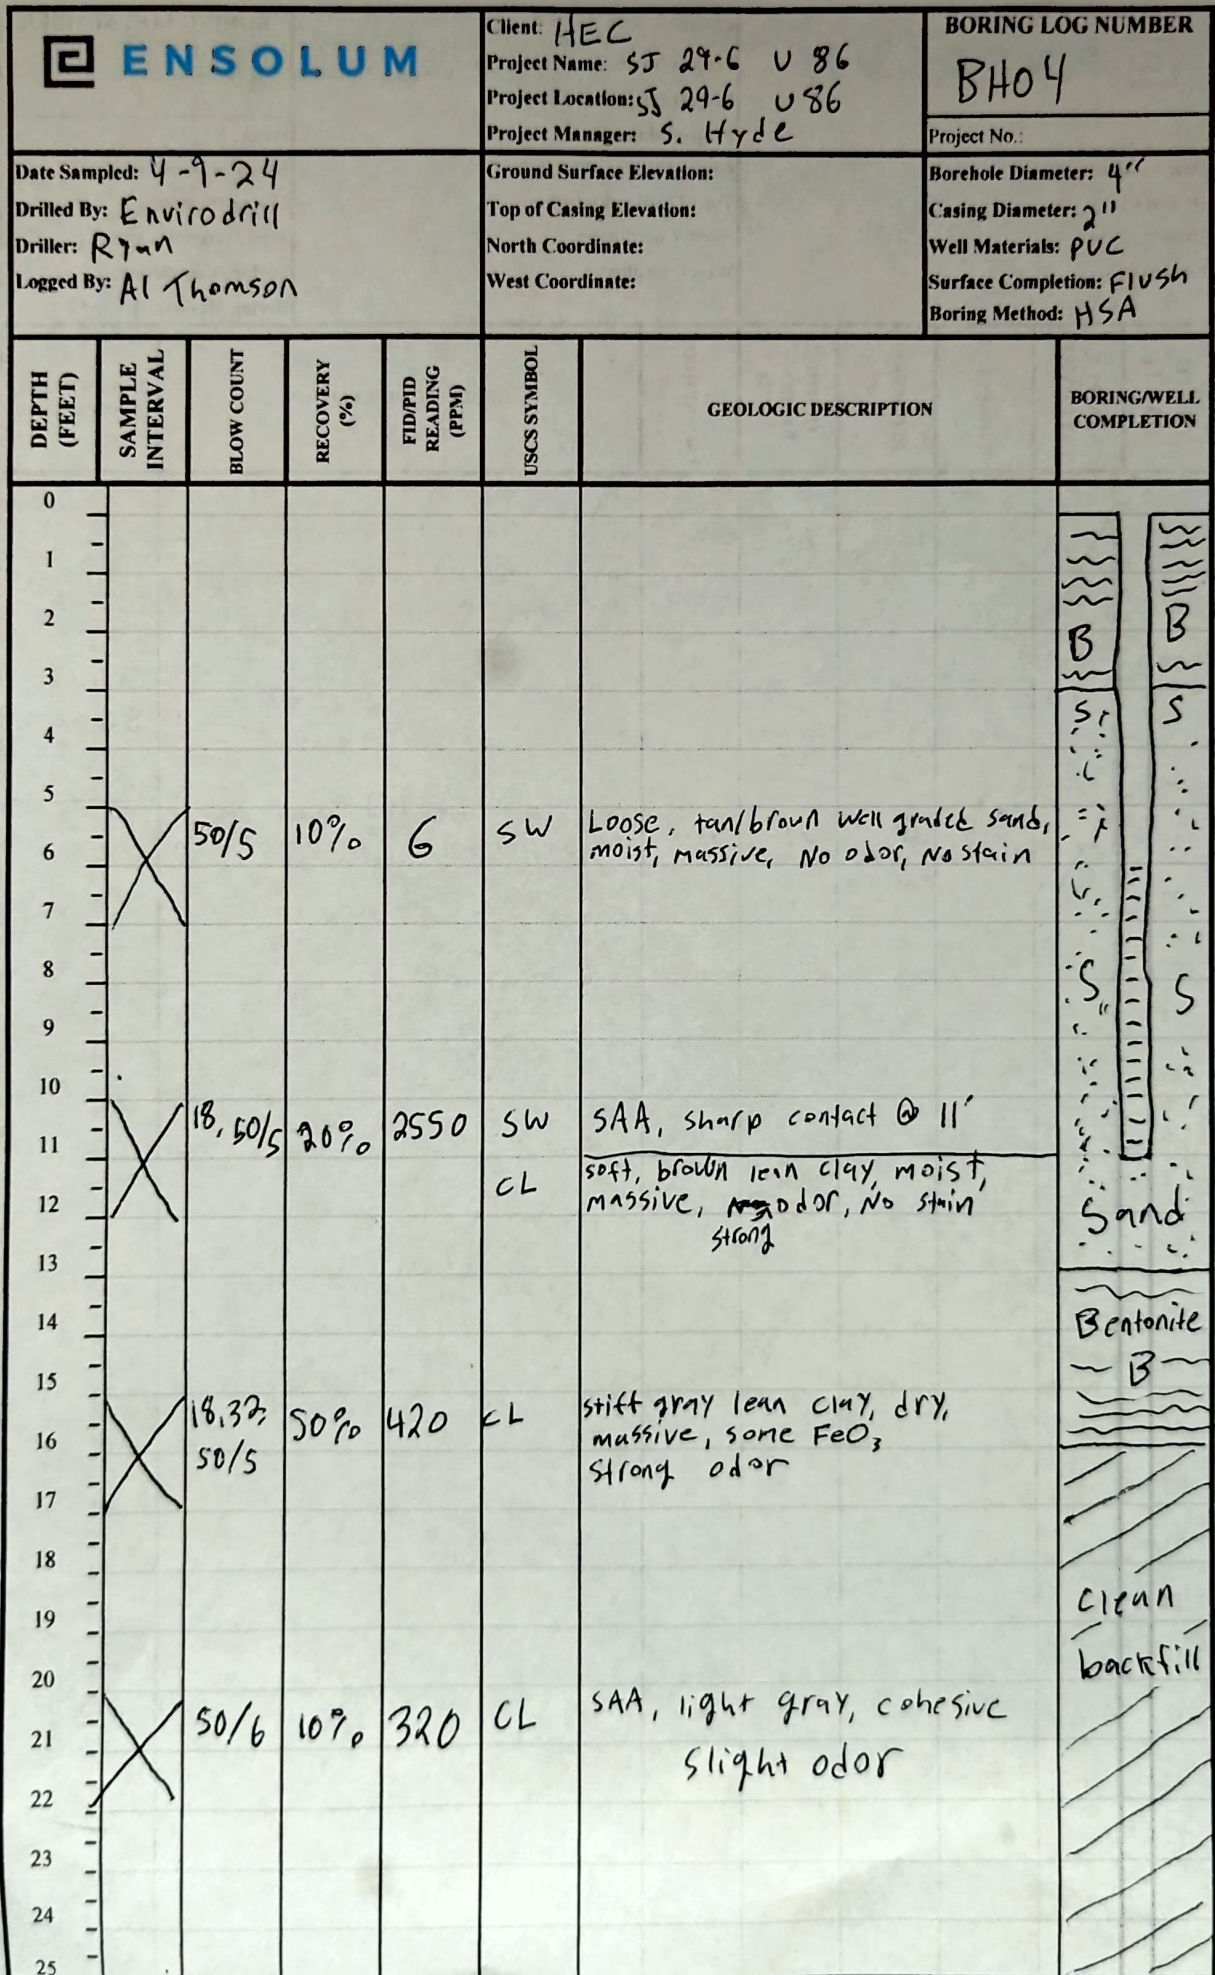 ENSOLUM
Client: HEC
Project Name: SJ 29-6 U 86
Project Location: SJ 29-6 U 86
Project Manager: S. Hyde
BORING LOG NUMBER
BH04
Project No.:
Date Sampled: 4-9-24
Drilled By: Envirodrill
Driller: Ryan
Logged By: Al Thomson
Ground Surface Elevation:
Top of Casing Elevation:
North Coordinate:
West Coordinate:
Borehole Diameter: 4"
Casing Diameter: 2"
Well Materials: PVC
Surface Completion: Flush
Boring Method: HSA
DEPTH
(FEET)
SAMPLE
INTERVAL
BLOW COUNT
RECOVERY
(%)
FID/PID
READING
(PPM)
USCS SYMBOL
GEOLOGIC DESCRIPTION
BORING/WELL
COMPLETION
0
1
2
B B
3
S S
4
5
50/5 10% 6 SW Loose, tan/brown well graded sand,
6 moist, massive, No odor, No stain
7
8
S S
9
10
18, 50/5 20% 2550 SW SAA, sharp contact @ 11'
11
CL soft, brown lean clay, moist,
12 massive, odor, No stain
strong
Sand
13
14 Bentonite
15 B
18,32, 50% 420 CL stiff gray lean clay, dry,
16 50/5 massive, some FeO3
strong odor
17
18
19 clean
20 backfill
50/6 10% 320 CL SAA, light gray, cohesive
21 slight odor
22
23
24
25